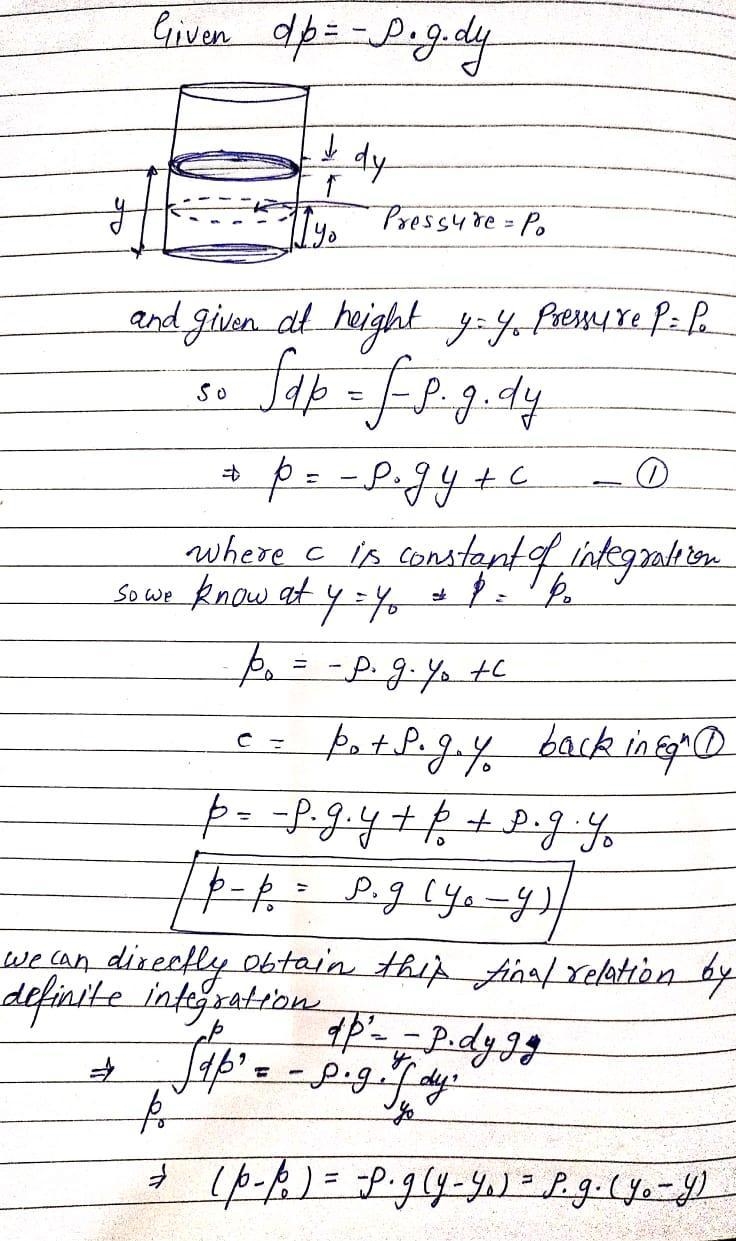 Given dp = -ρ.g.dy
dy
y
y₀
Pressure = P₀
and given at height y=y₀ Pressure P=P₀
so ∫dp = ∫-ρ.g.dy
⇒ p = -ρ.gy + c — ①
where c is constant of integration
So we know at y=y₀ ⇒ p = p₀
p₀ = -ρ.g.y₀ +c
c = p₀+ρ.g.y₀ back in Eqⁿ ①
p = -ρ.g.y + p₀ + ρ.g.y₀
p-p₀ = ρ.g (y₀-y)
we can directly obtain this final relation by
definite integration
dp' = -ρ.dy g
⇒ ∫ₚ₀ᵖ dp' = -ρ.g.∫ᵧ₀ʸ dy'
⇒ (p-p₀) = -ρ.g(y-y₀) = ρ.g.(y₀-y)